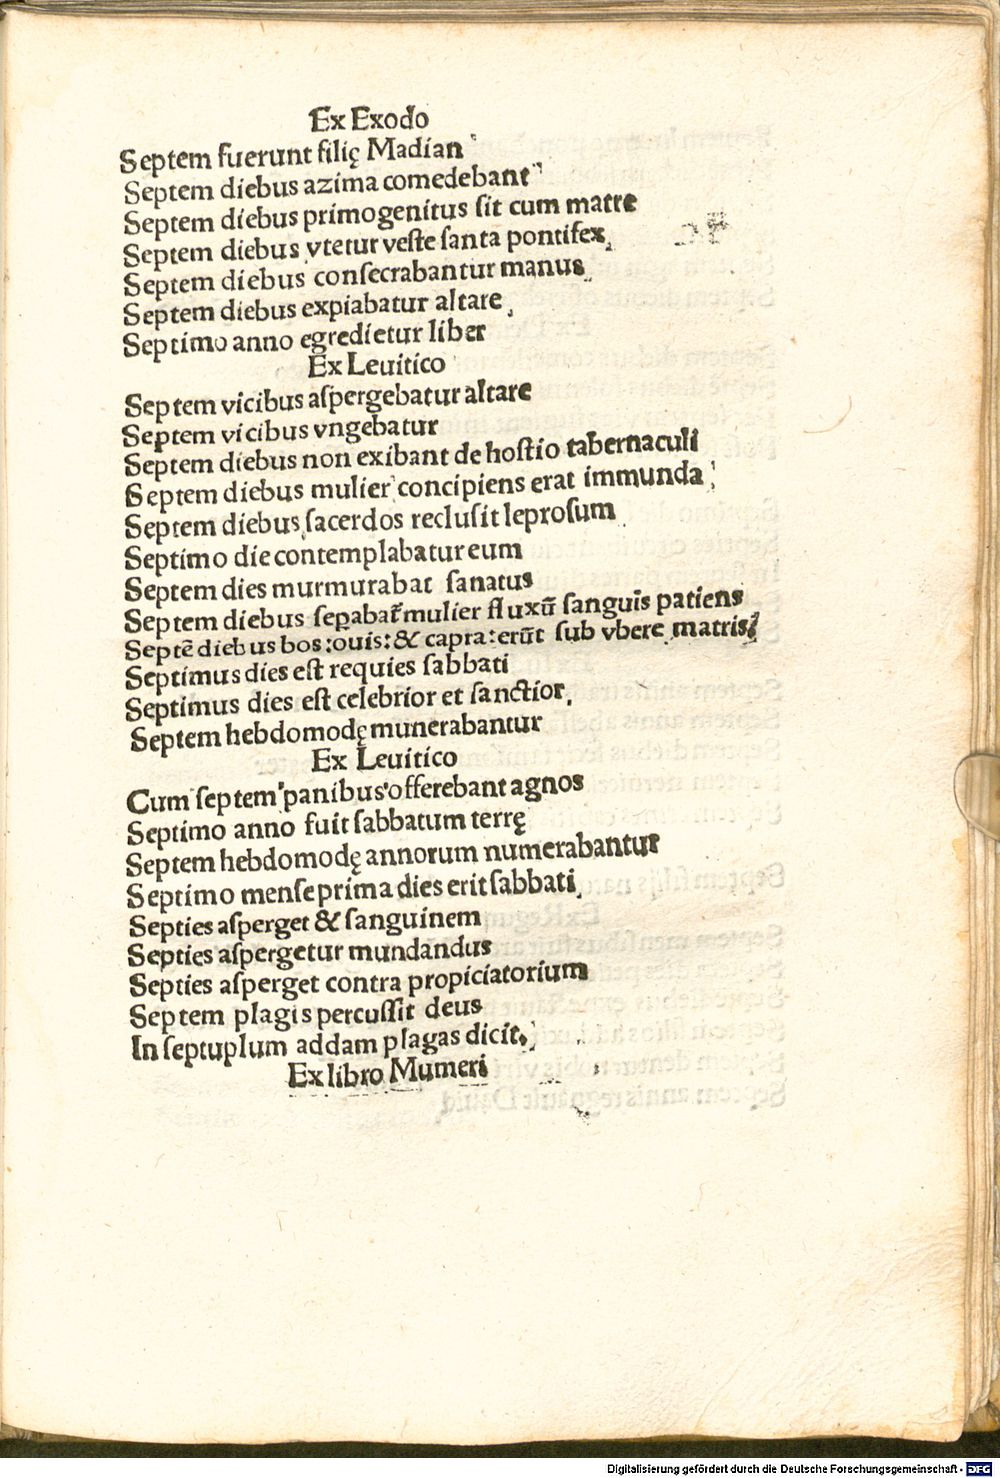 Ex Exodo
Septem fuerunt filię Madian
Septem diebus azima comedebant
Septem diebus primogenitus sit cum matre
Septem diebus vtetur veste santa pontifex
Septem diebus consecrabantur manus
Septem diebus expiabatur altare
Septimo anno egredietur liber
Ex Leuitico
Septem vicibus aspergebatur altare
Septem vicibus vngebatur
Septem diebus non exibant de hostio tabernaculi
Septem diebus mulier concipiens erat immunda
Septem diebus sacerdos reclusit leprosum
Septimo die contemplabatur eum
Septem dies murmurabat sanatus
Septem diebus sepabat᷑ mulier fluxū sanguis patiens
Septē diebus bos: ouis: & capra: erūt sub vbere matris
Septimus dies est requies sabbati
Septimus dies est celebrior et sanctior
Septem hebdomodę munerabantur
Ex Leuitico
Cum septem panibus offerebant agnos
Septimo anno fuit sabbatum terrę
Septem hebdomodę annorum numerabantur
Septimo mense prima dies erit sabbati
Septies asperget & sanguinem
Septies aspergetur mundandus
Septies asperget contra propiciatorium
Septem plagis percussit deus
In septuplum addam plagas dicit.
Ex libro Mumeri
Digitalisierung gefördert durch die Deutsche Forschungsgemeinschaft - DFG